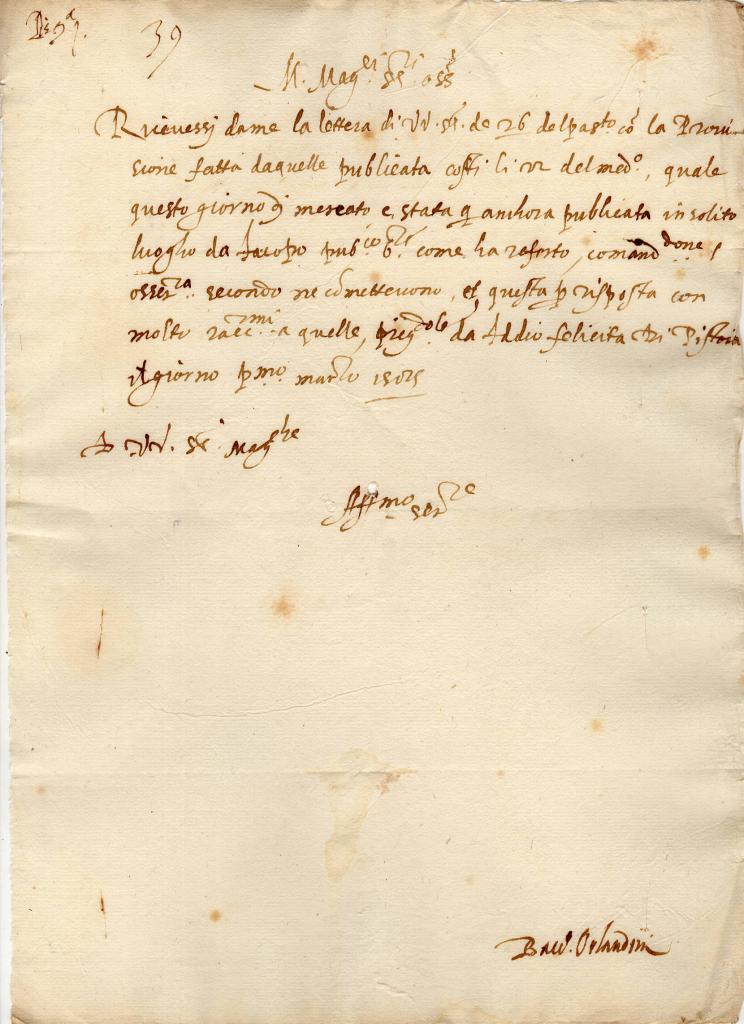 39
M. Mag.ci SS.ri oss.
Ricievessj da me la lettera di VV. SS. de 26 del pas.to cō la Provi
sione fatta da quelle publicata costi li 22 del med.o, quale
questo giorno dj mercato e, stata q anchora publicata in solito
luogho da Jacopo pub.co b. come ha referto, comand done l
osser.za secondo ne cōmettevono, et questa p risposta con
molto racc.mi a quelle, preg.dole da Addio felicita Di Pistoia
il giorno p.mo marzo
A VV. SS. Mag.che
Aff.mo ser.re
Bacc. Orlandini